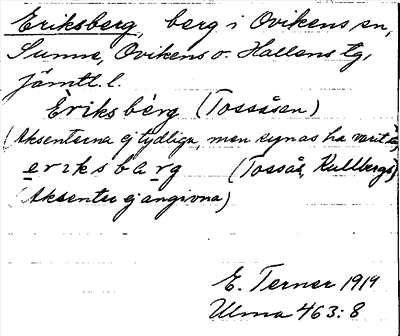 Eriksberg, berg i Ovikens sn,
Sunne, Ovikens o. Hallens tg,
Jämtl. l.
Èriksbérg (Tossåsen)
(Aksenterna ej tydliga, men synas ha varit så)
eriksbarg (Tossås, Kullbergs)
(Aksenter ej angivna)
E. Terner 1919
Ulma 463:8